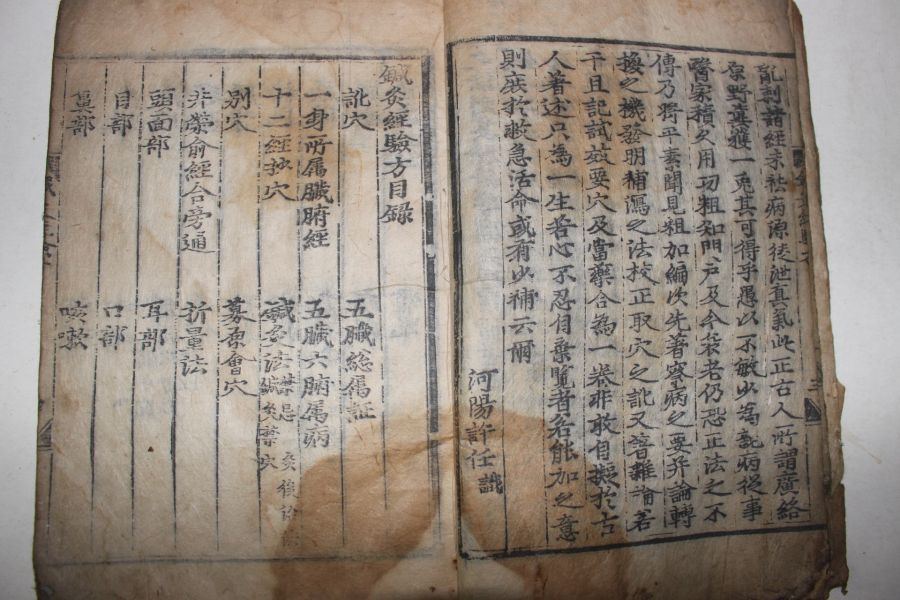 亂刺諸經未祛病源徒泄真氣此正古人所謂廣絡
原野冀獲一兎其可得乎愚以不敏少為親病從事
醫家積久用功粗知門户及今衰老仍恐正法之不
傳乃將平素聞見粗加編次先著察病之要并論轉
換之機發明補瀉之法校正取穴之訛又著雜論若
干且記試效要穴及當藥合為一卷非敢自擬於古
人著述只為一生苦心不忍自棄覽者若能加之意
則庶於救急活命或有少補云爾
河陽許任識
鍼灸經驗方目録
訛穴 五臟総屬証
一身所屬臟腑經 五臟六腑屬病
十二經抄穴 鍼灸法
別穴 募原會穴
井滎俞經合旁通 折量法
頭面部 耳部
目部 口部
鼻部 咳嗽